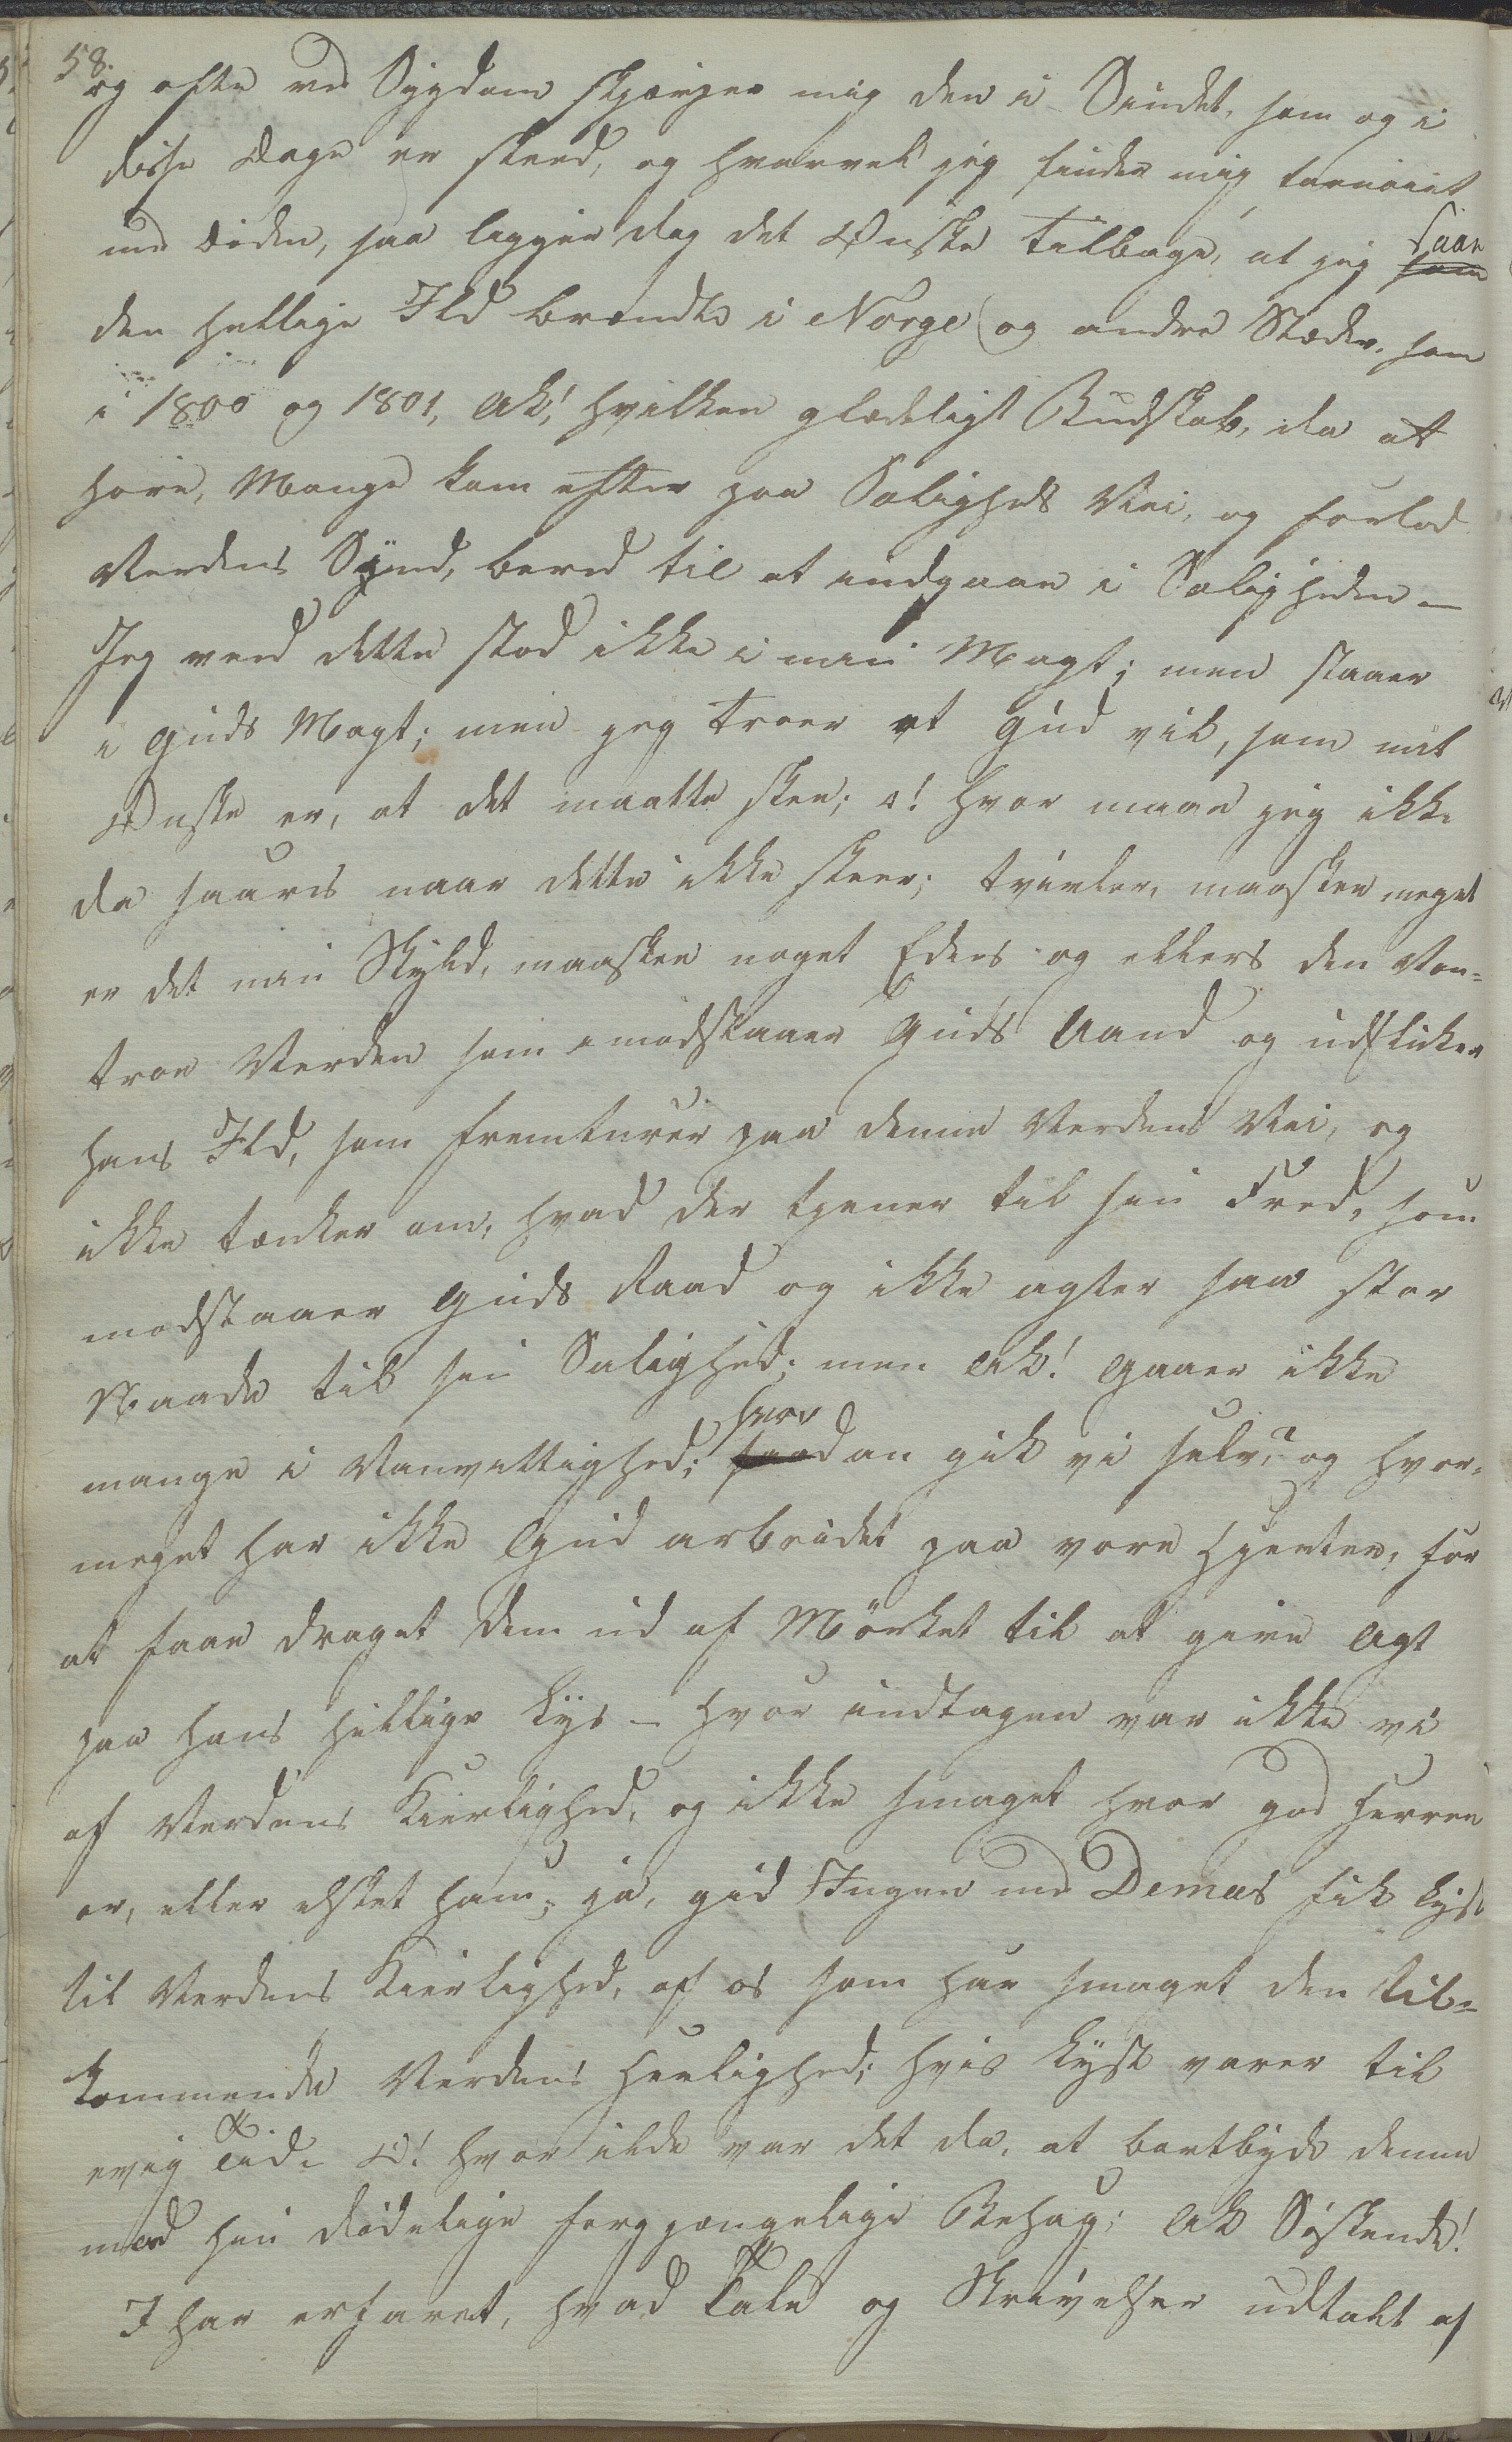 58.
og ofte ved Sygdom skjærper mig den i Sindet, som og i
disse Dage er skeed, og hvorvel jeg finder mig fornøiet
med Døden, saa ligger dog det Ønske tilbage, at jeg saae
den hellige Ild brændte i Norge og andre Stæder, som
i 1800 og 1801, Ak! hvilken glædeligt Budskab, da at
høre, Mange kom efter paa Saligheds Vei, og forlod
Verdens Synd, bered til at indgaae i Saligheden –
Jeg veed dette stod ikke i min Magt; men staaer
i Guds Magt; men jeg troer at Gud vil, som mit
Ønske er, at det maatte skee; o! hvor maae jeg ikke
da naar dette ikke skeer; tvivler, maaskee meget
er det min Skyld, maaskee noget Eders og ellers den Van-
troe Verden som imodstaaer Guds Aand og udslukker
hans Ild, som fremturer paa denne Verdens Vei, og
ikke tænker om, hvad der tjener til sin Fred, som
modstaaer Guds Raad og ikke agter saa stor
Naade til sin Salighed; men Ak! gaaer ikke
mange i Vanvittighed; hvordan gik vi selv? og hvor-
meget har ikke Gud arbeidet paa vore Hjerter, for
at faae draget dem ud af Mörket til at give Agt
paa hans hellige Lys – hvor indtagen var ikke vi
af Verdens Kierlighed, og ikke smaget hvor god Herren
er, eller elsket ham; ja, gid Ingen med Demas fik Lyst
til Verdens Kierlighed, af os som har smaget den til-
kommende Verdens Herlighed; hvis Lyst varer til
evig Tid. O! hvor ilde var det da, at bortbyde denne
med hin dødelige forgjængelige Behag; Ak Søskende!
I har erfaret, hvad Tale og Skrivelser udtalt af